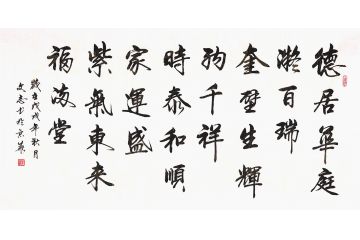 德居華庭
瀲百瑞
奎壁生輝
納千祥
時泰和順
家運盛
紫氣東來
福滿堂
歲在戊戌年秋月
文志書於京華